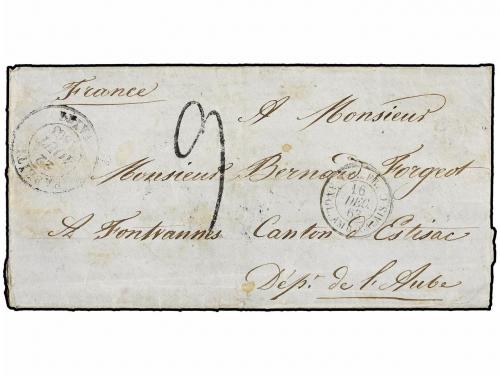 France
A Monsieur
9
Monsieur Bernard Forgeot
A Fontvannes Canton d'Estisac
Dép.t de l'Aube
16
DEC.
62
22